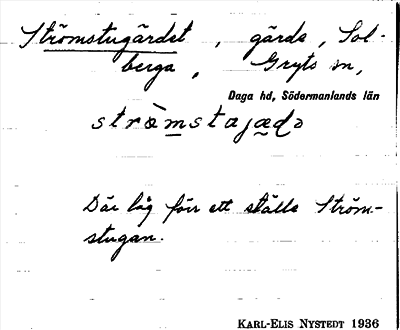 Strömstugärdet, gärde, Sol-
berga, Gryts sn,
Daga hd, Södermanlands län
stròmstajædə
Där låg förr ett ställe Ström-
stugan.
KARL-ELIS NYSTEDT 1936